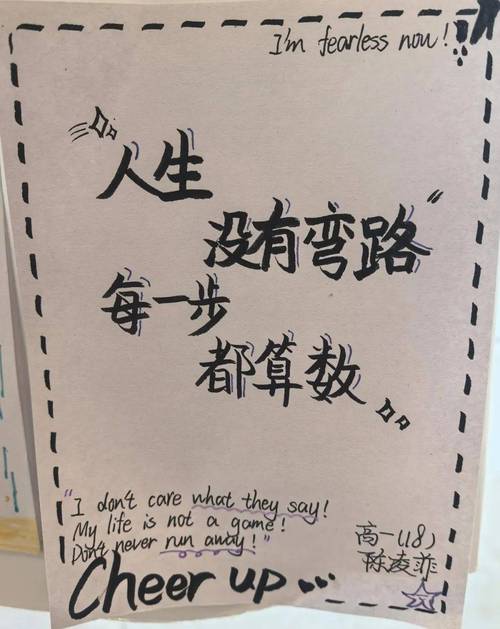 I'm fearless now!
"人生
没有弯路"
每一步
都算数
"I don't care what they say!
My life is not a game!
Don't never run away!"
高一(18)
陈凌菲
Cheer up...